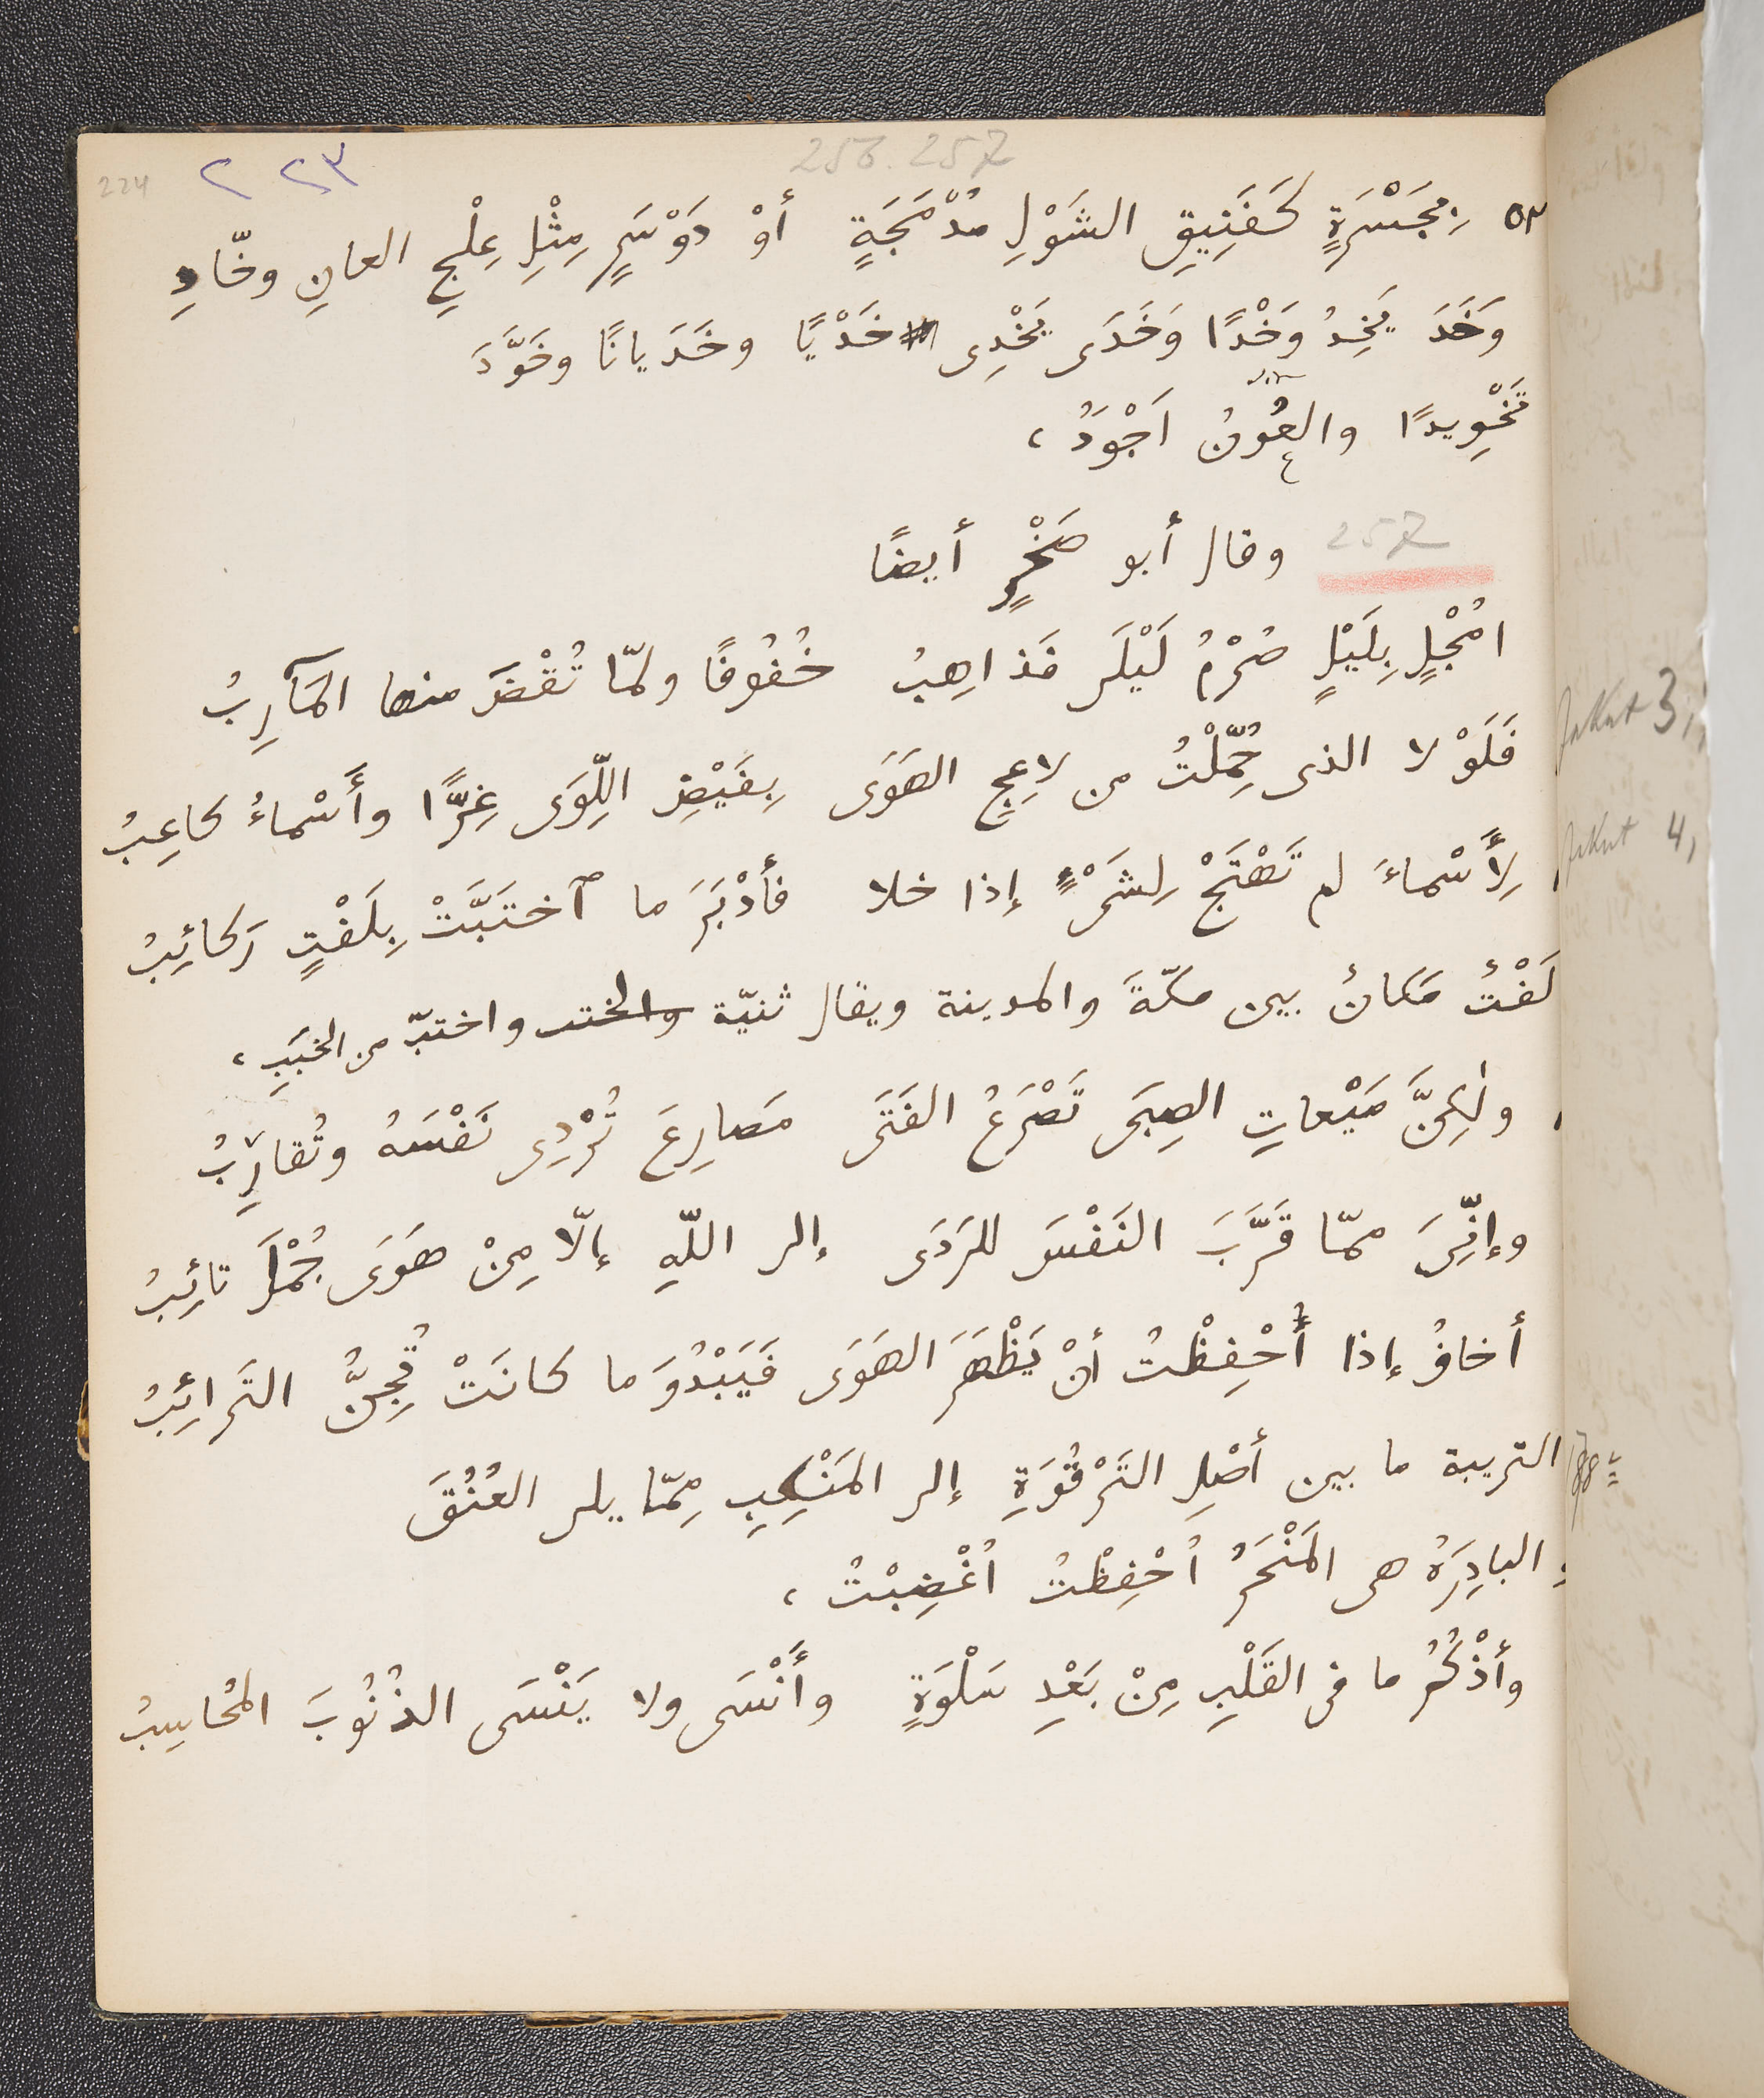 224 ٢٢٣ 256. 257
٥٣ بِجَسْرَةٍ كَفَنِيقِ الشَوْلِ مُدْمَجَةٍ أوْ دَوْسَرٍ مِثْلِ عِلْجِ العانِ وخّادِ
وَخَدَ يَخِدُ وَخْدًا وَخَدَى يَخْدِى خَدْيًا وخَدَيانًا وخَوَّدَ
تَخْوِيدًا والعُونُ اَجْوَدُ،
257 وقال أبو صَخْرٍ أيضًا
اَمُجْلٍ بِلَيْلٍ صُرْمُ لَيْلَى فَذاهِبُ خُفُوفًا ولمّا تُقْضَ منها المَآرِبُ
فَلَوْلا الذى حُمِّلْتُ من لاعِجِ الهَوَى بِفَيْضِ اللِّوَى غِرًّا وأَسْماءُ كاعِبُ
لِأَسْماءَ لم تَهْتَجْ لِشَىْءٍ إذا خلا فأَدْبَرَ ما ٱختَبَّتْ بِلَفْتٍ رَكائِبُ
لَفْتٌ مَكانٌ بين مكّةَ والمدينة ويقال ثنيّة واختبّ من الخَبَبِ،
ولٰكِنَّ مَيْعاتِ الصِبَى تَصْرَعُ الفَتَى مَصارِعَ تُرْدِى نَفْسَهُ وتُقارِبُ
وإنِّىَ ممّا قَرَّبَ النَفْسَ للرَدَى إلى اللّهِ إلّا مِنْ هَوَى جُمْلَ تائِبُ
أخافُ إذا أُحْفِظْتُ أنْ يَظْهَرَ الهَوَى فَيَبْدُوَ ما كانَتْ تُجِنُّ التَرائِبُ
التريبة ما بين أصْلِ التَرْقُوَةِ إلى المَنْكِبِ مِمّا يلى العُنُقَ
و البادِرَةُ هى المَنْحَرُ اُحْفِظْتُ اُغْضِبْتُ،
وأذْكُرُ ما فى القَلْبِ مِنْ بَعْدِ سَلْوَةٍ وأَنْسَى ولا يَنْسَى الذُنُوبَ المُحاسِبُ
Jakut 3,
Jakut 4,